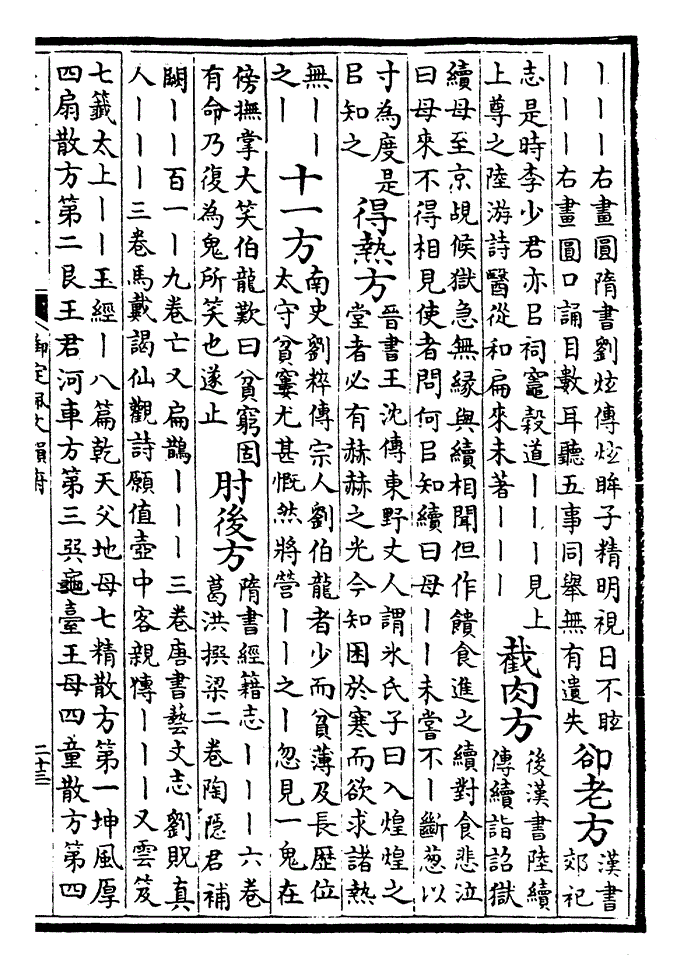 丨丨丨右畫圓隋書劉炫傳炫眸子精明視日不眩
丨丨丨右畫圓口誦目數耳聽五事同舉無有遺失
卻老方
漢書
郊祀
志是時李少君亦㠯祠竈穀道丨丨丨見上
上尊之陸游詩醫從和扁來未著丨丨丨
截肉方
後漢書陸續
傳續詣詔獄
續母至京覘候獄急無緣與續相聞但作饋食進之續對食悲泣
曰母來不得相見使者問何㠯知續曰母丨丨未嘗不丨斷葱以
寸為度是
㠯知之
得熱方
晉書王沈傳東野丈人謂氷氏子曰入煌煌之
堂者必有赫赫之光今知困於寒而欲求諸熱
無丨丨
之丨
十一方
南史劉粹傳宗人劉伯龍者少而貧薄及長歴位
太守貧窶尤甚慨然將營丨丨之丨忽見一鬼在
傍撫掌大笑伯龍歎曰貧窮固
有命乃復為鬼所笑也遂止
肘後方
隋書經籍志丨丨丨六卷
葛洪撰梁二卷陶隠君補
闕丨丨百一丨九卷亡又扁鵲丨丨丨三卷唐書藝文志劉貺真
人丨丨丨三卷馬戴謁仙觀詩願值壺中客親傳丨丨丨又雲笈
七籤太上丨丨玉經丨八篇乾天父地母七精散方第一坤風厚
四扇散方第二艮王君河車方第三巽龜臺王母四童散方第四
御定佩文韻府
二十三